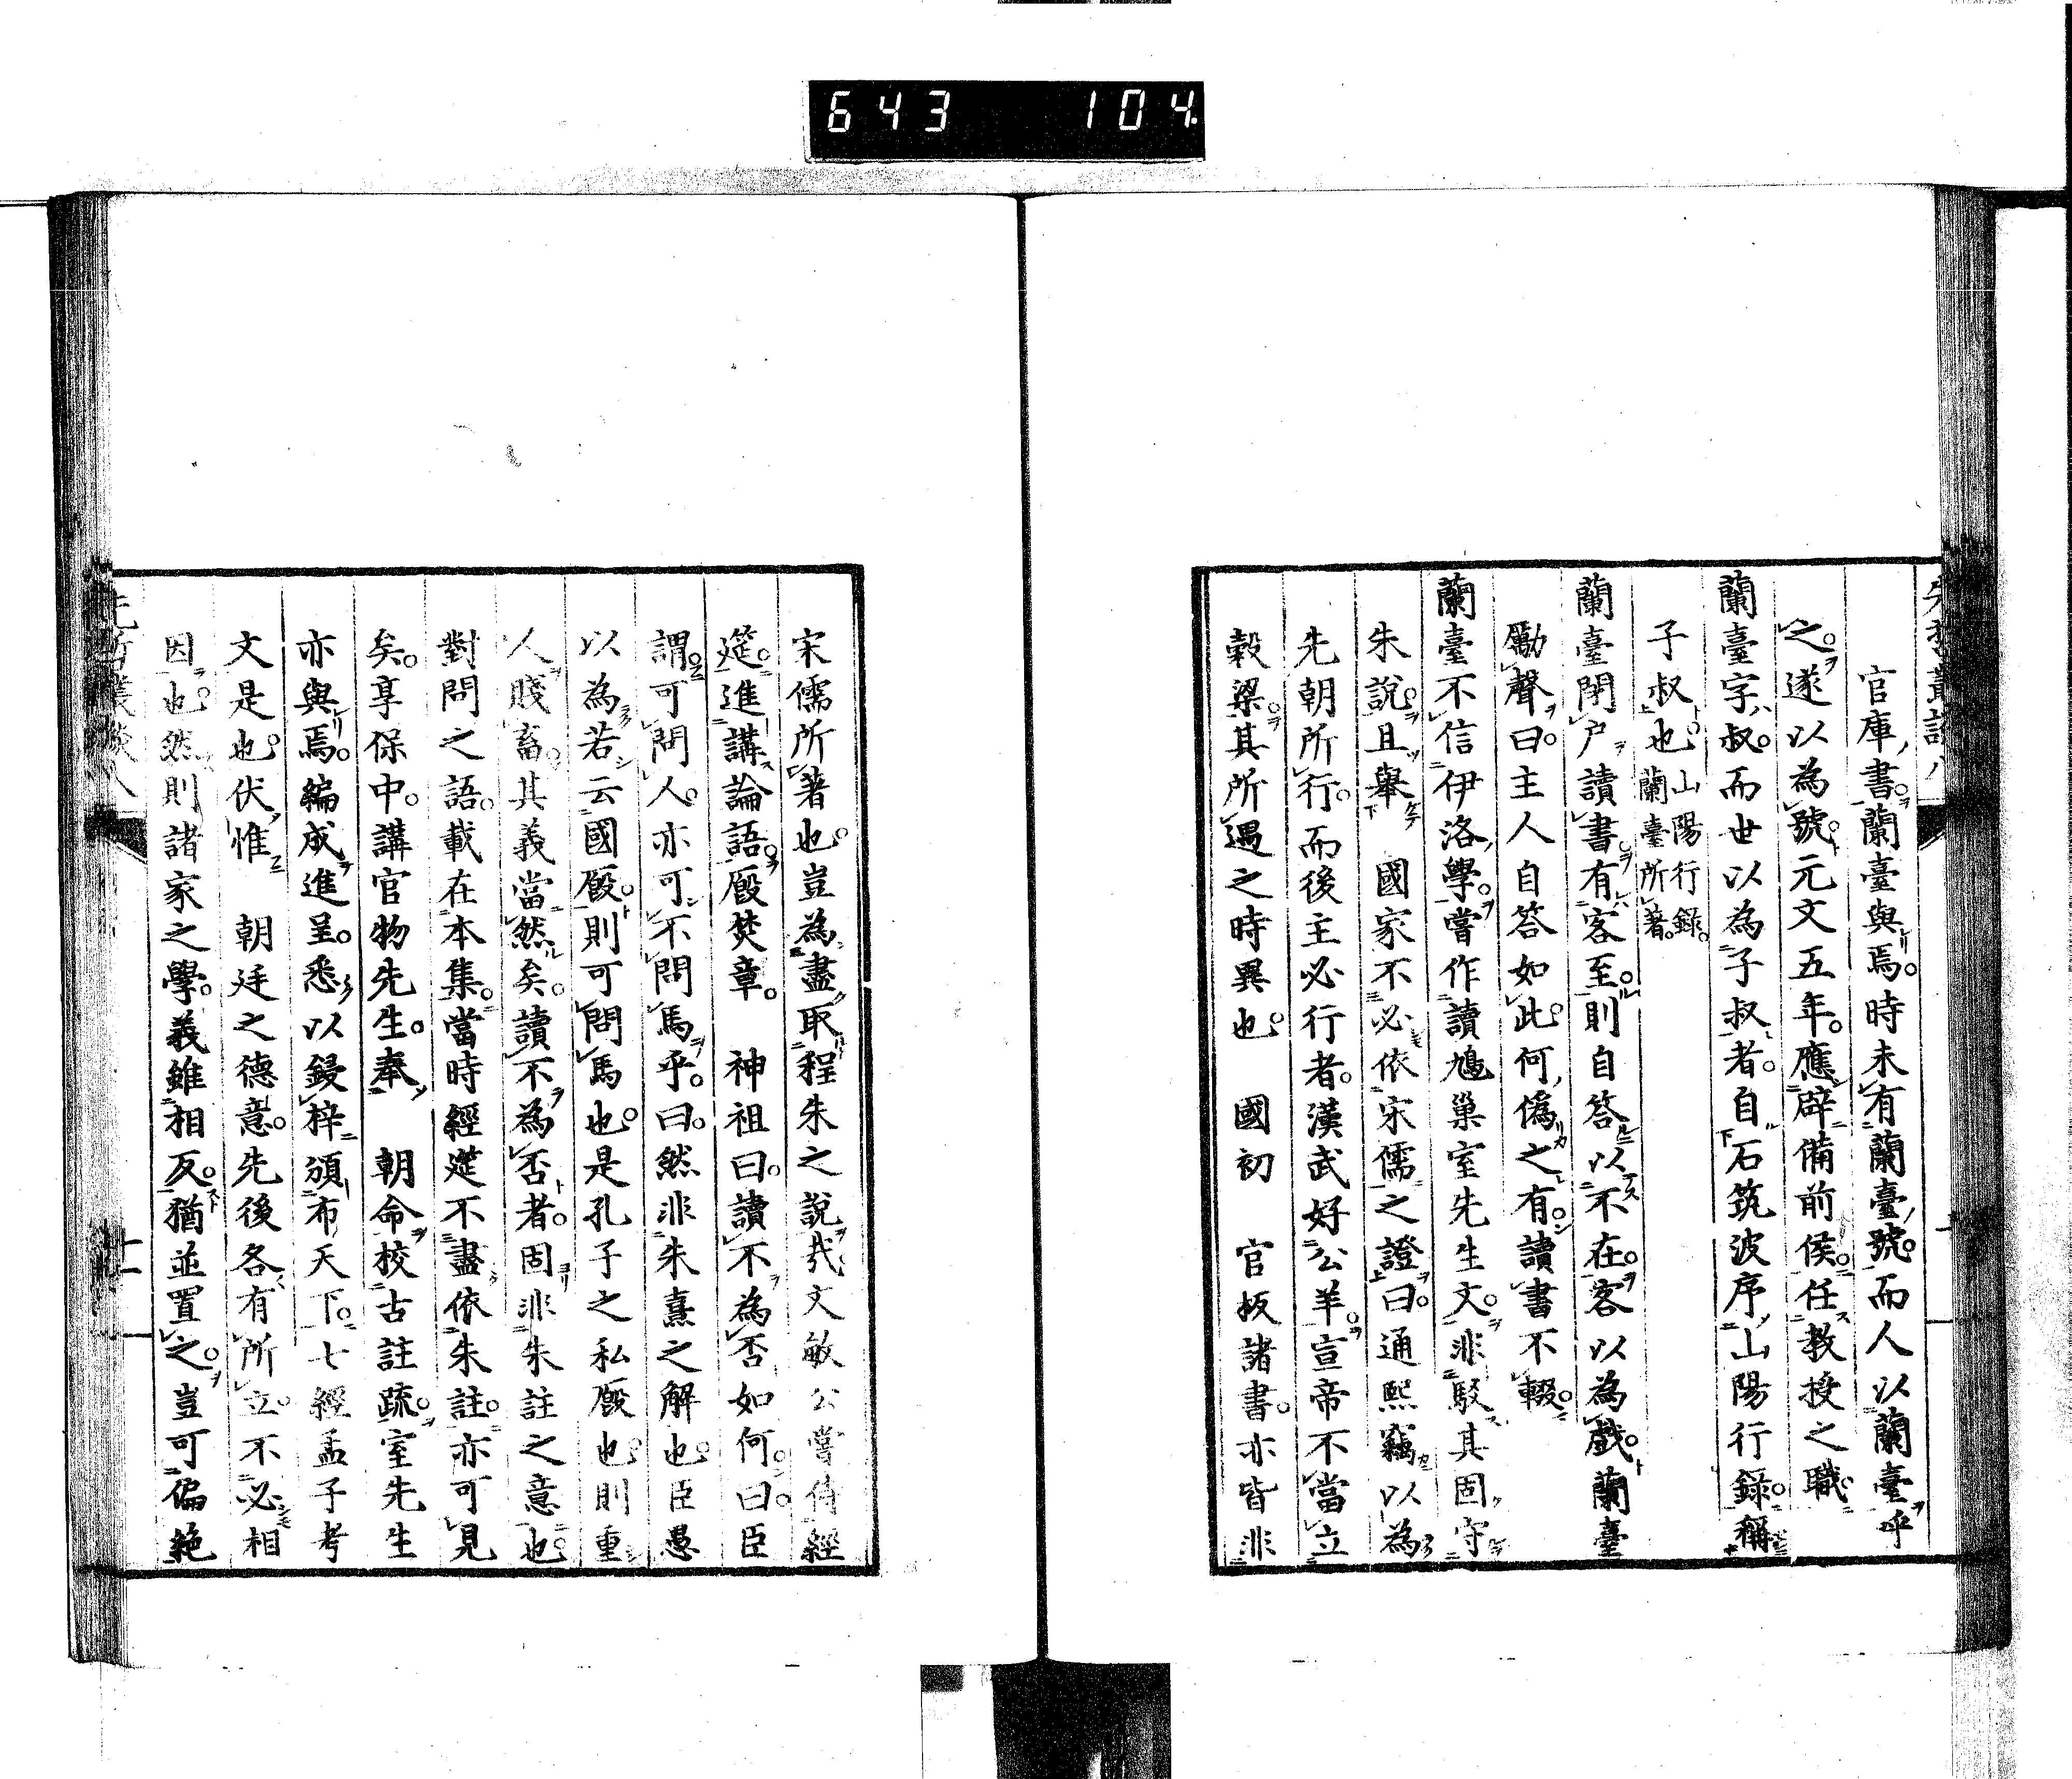 643 104
官庫書。蘭臺與焉。時未有蘭臺號。而人以蘭臺呼
之。遂以為號。元文五年。應辟備前侯。任教授之職
蘭臺字叔。而世以為子叔者。自石筑波序山陽行錄。稱
子叔也。山陽行錄。
蘭臺所著。
蘭臺閉户讀書。有客至。則自答以不在。客以為戲。蘭臺
勵聲曰。主人自答如此。何偽之有。讀書不輟。
蘭臺不信伊洛學。嘗作讀鳩巢室先生文。非駁其固守
朱說。且舉 國家不必依宋儒之證曰。通熙竊以為
先朝所行。而後主必行者。漢武好公羊。宣帝不當立
穀梁。其所遇之時異也。 國初 官板諸書。亦皆非
宋儒所著也。豈為盡取程朱之說哉文敏公嘗侍經
筵。進講論語。廄焚章。 神祖曰。讀不為否如何。曰。臣
謂可問人。亦可不問馬乎。曰。然非朱熹之解也。臣愚
以為若云國廄。則可問馬也。是孔子之私廄也。則重
人賤畜。其義當然矣。讀不為否者。固非朱註之意也。
對問之語。載在本集。當時經筵不盡依朱註。亦可見
矣。享保中。講官物先生。奉 朝命校古註疏。室先生
亦與焉。編成進呈。悉以鋟梓頒布天下。七經孟子考
文是也。伏惟 朝廷之德意。先後各有所立。不必相
因也。然則諸家之學。義雖相反。猶並置之。豈可偏絶
十二